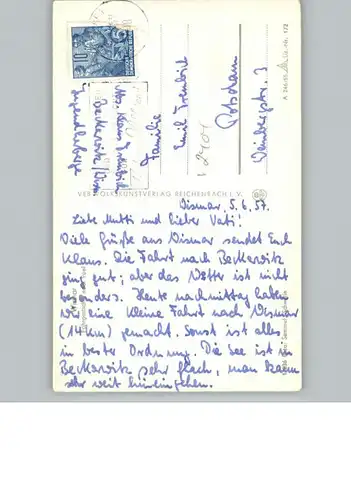 Wismar, 5.6.57.
Liebe Mutti und lieber Vati!
Viele Grüße aus Wismar sendet Euch
Klaus. Die Fahrt nach Beckerwitz
ging gut; aber das Wetter ist nicht
besonders. Heute nachmittag haben
wir eine kleine Fahrt nach Wismar
(14 km) gemacht. Sonst ist alles
in bester Ordnung. Die See ist in
Beckerwitz sehr flach, man kann
sehr weit hineingehen.
Familie
Emil
Potsdam
Weinbergstr. 3
Abs. Klaus
Beckerwitz/Wism
Jugendherberge
VEB VOLKSKUNSTVERLAG REICHENBACH I. V.
10